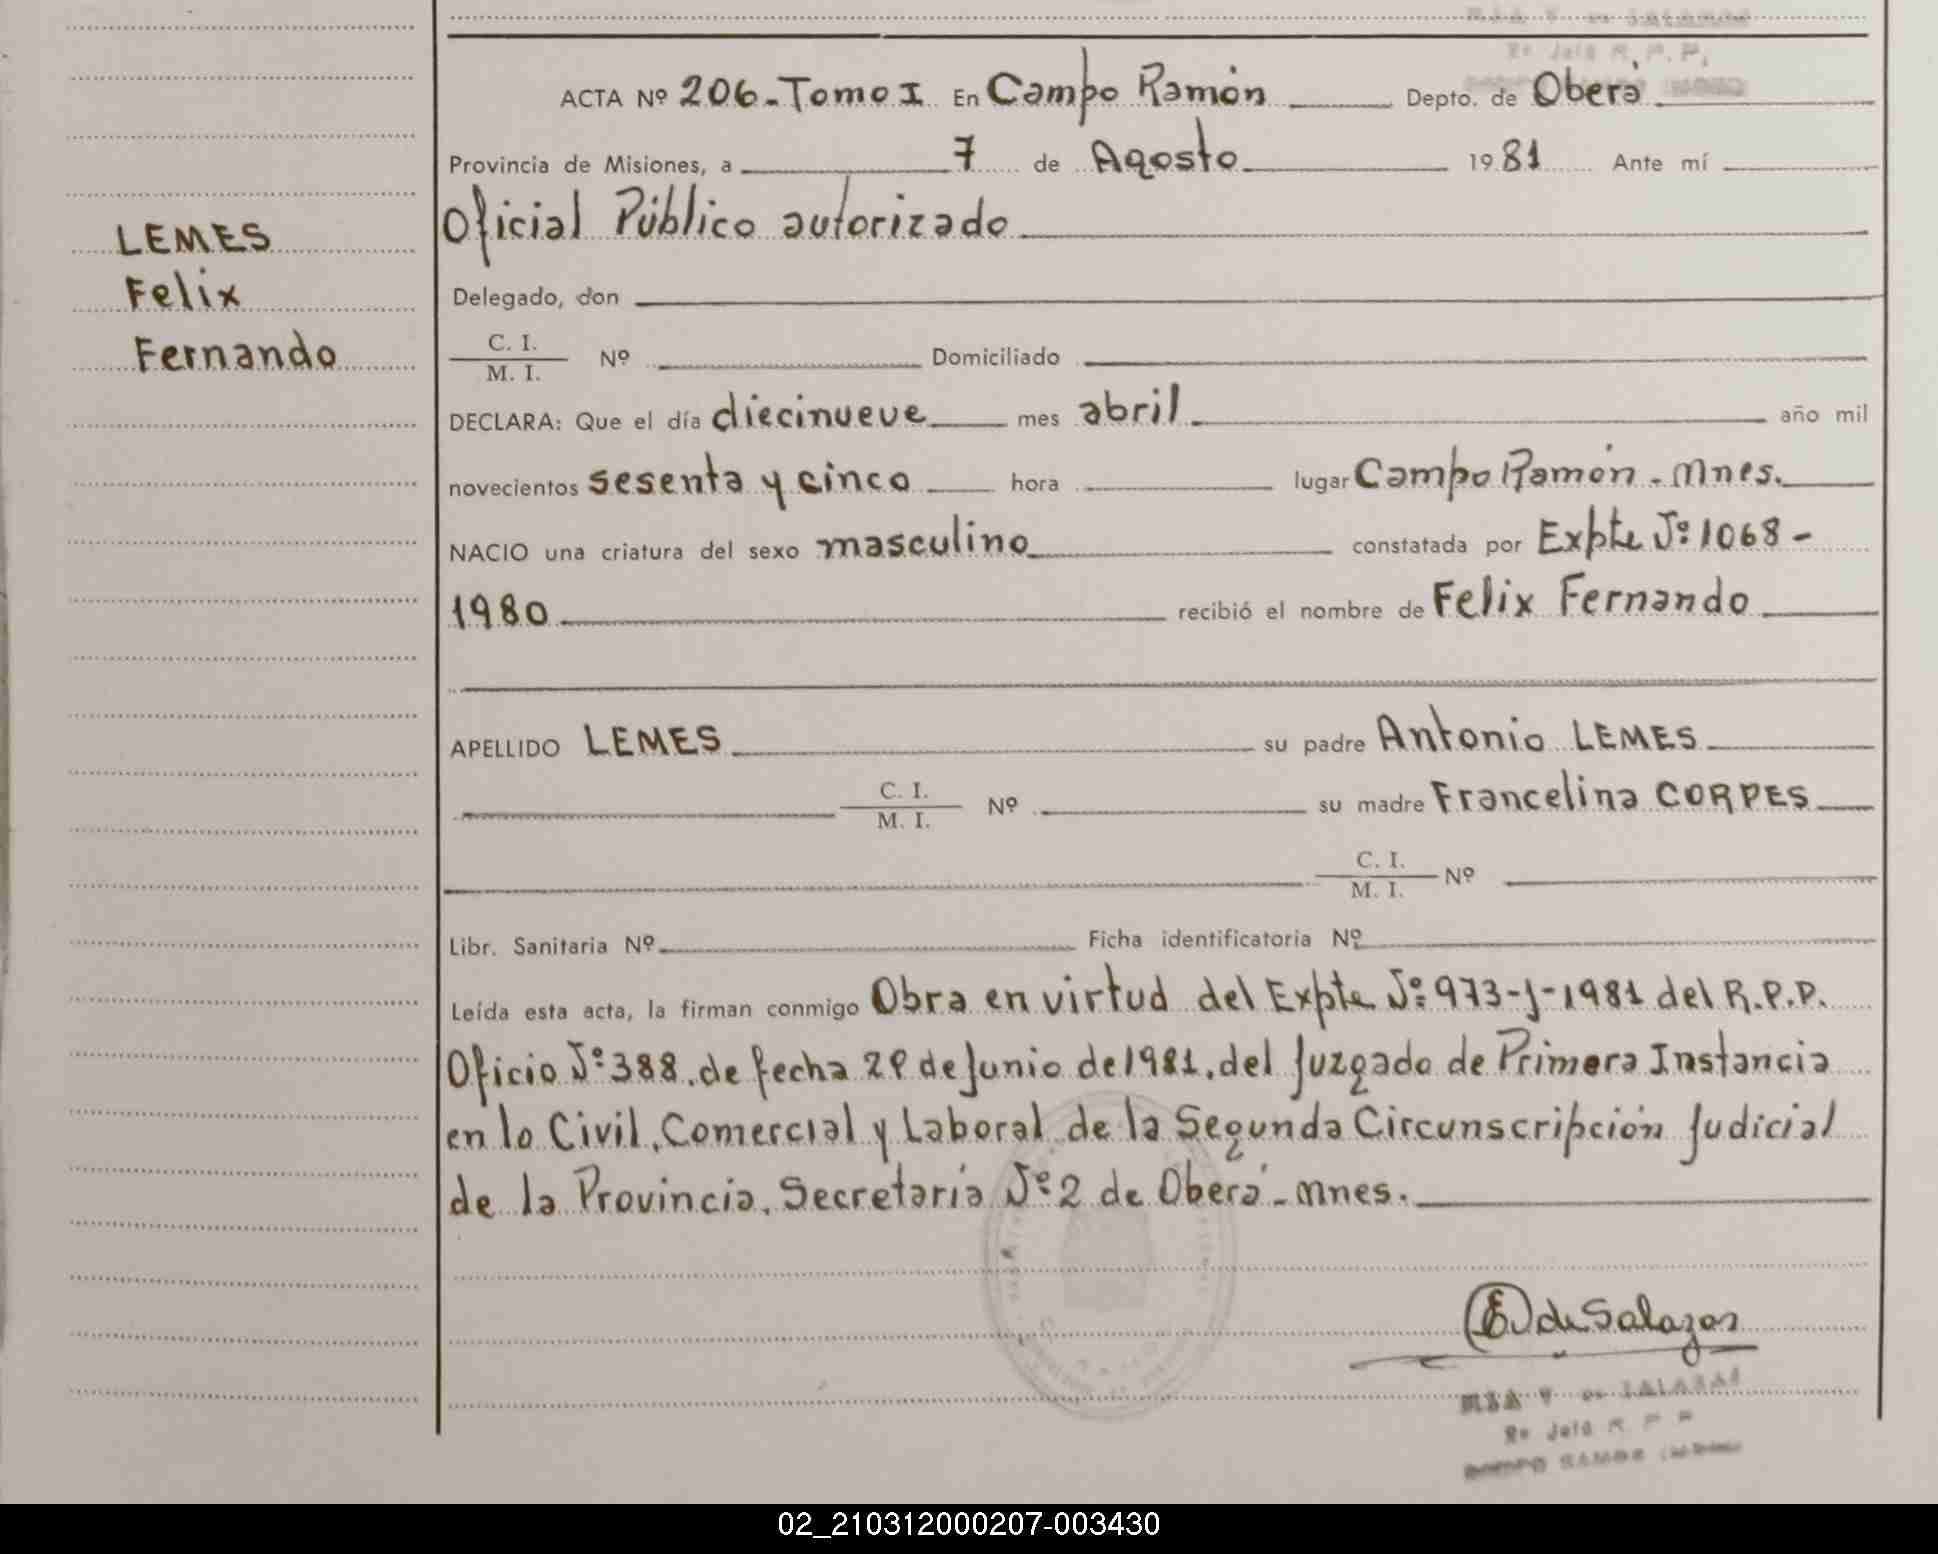 ACTA Nº 206-Tomo I En Campo Ramón Depto. de Oberá
Provincia de Misiones, a 7 de Agosto 1981 Ante mí
Oficial Público autorizado
LEMES
Felix
Fernando
Delegado, don
C. I.
M. I.
Nº Domiciliado
DECLARA: Que el día diecinueve mes abril año mil
novecientos sesenta y cinco hora lugar Campo Ramón - Mnes.
NACIO una criatura del sexo masculino constatada por Expte Nº 1068-
1980 recibió el nombre de Felix Fernando
APELLIDO LEMES su padre Antonio LEMES
C. I.
M. I.
Nº su madre Francelina CORPES
C. I.
M. I.
Nº
Libr. Sanitaria Nº Ficha identificatoria Nº
Leída esta acta, la firman conmigo Obra en virtud del Expte Nº 973-J-1981 del R.P.P.
Oficio Nº 388, de fecha 29 de Junio de 1981, del Juzgado de Primera Instancia
en lo Civil, Comercial y Laboral de la Segunda Circunscripción Judicial
de la Provincia, Secretaría Nº 2 de Oberá - Mnes.
de Salazar
02_210312000207-003430